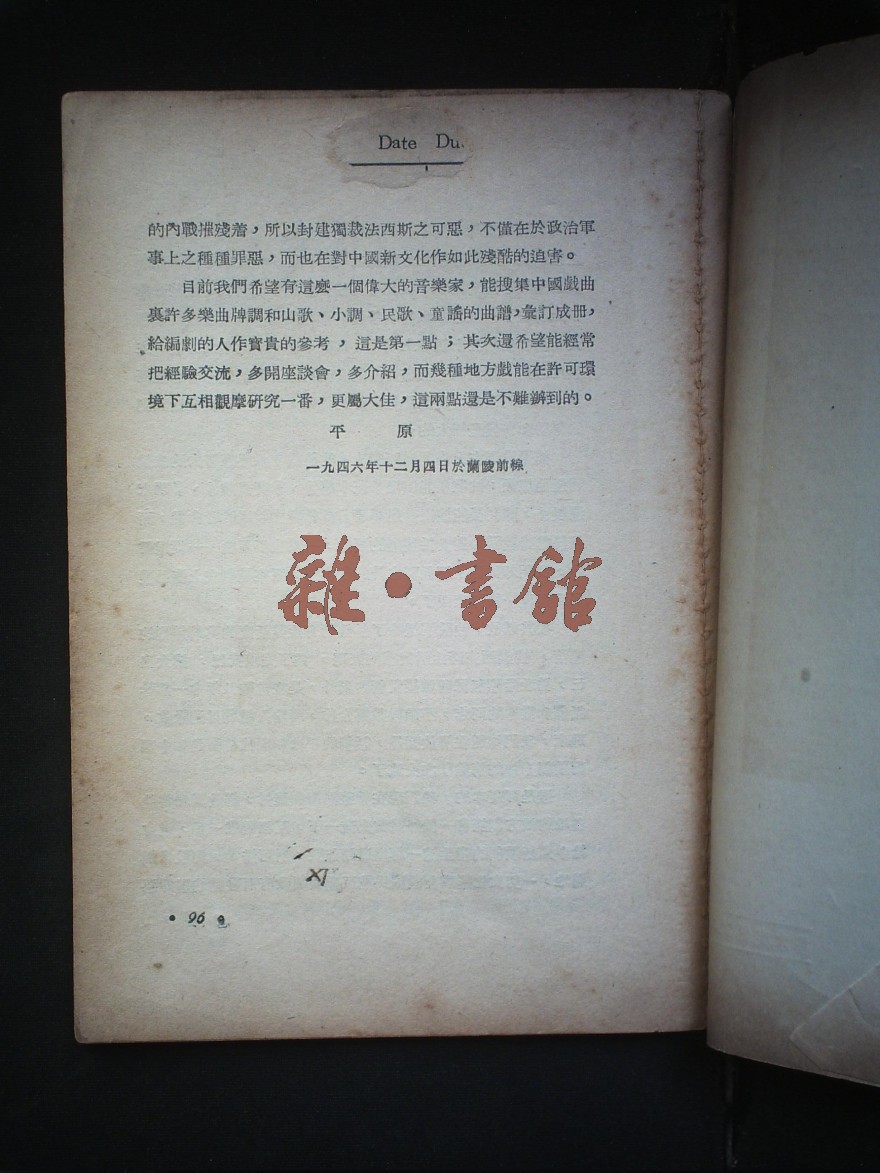 Date Du
的內戰摧殘着，所以封建獨裁法西斯之可惡，不僅在於政治軍
事上之種種罪惡，而也在對中國新文化作如此殘酷的迫害。
目前我們希望有這麽一個偉大的音樂家，能搜集中國戲曲
裏許多樂曲牌調和山歌、小調、民歌、童謠的曲譜，彙訂成冊，
給編劇的人作寶貴的參考，這是第一點；其次還希望能經常
把經驗交流，多開座談會，多介紹，而幾種地方戲能在許可環
境下互相觀摩研究一番，更屬大佳，這兩點還是不難辦到的。
平　原
一九四六年十二月四日於蘭陵前線
雜•書館
XI
• 96 •